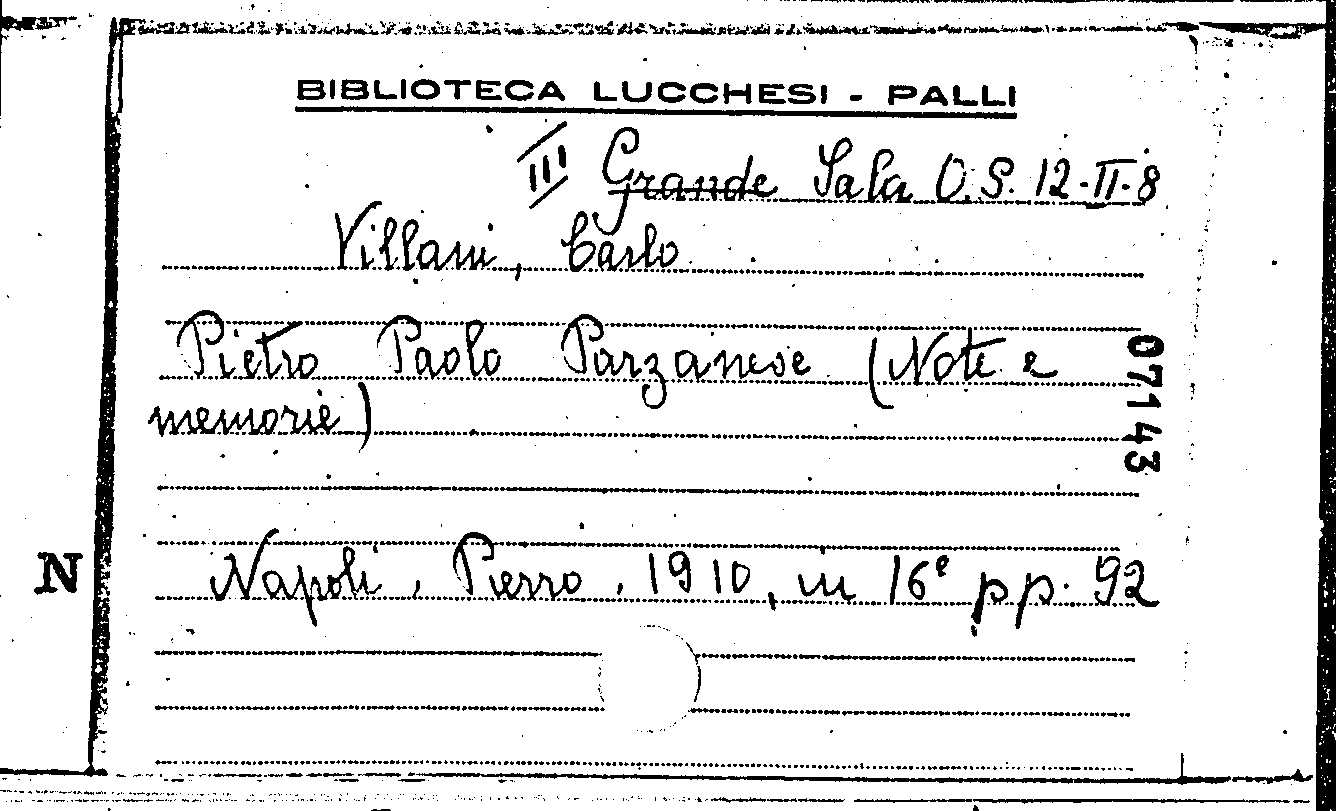 BIBLIOTECA LUCCHESI - PALLI
III Grande Sala O.S. 12-II-8
Villani, Carlo
Pietro Paolo Parzanese (Note e
memorie)
07143
N
Napoli, Pierro, 1910, in 16° pp. 92